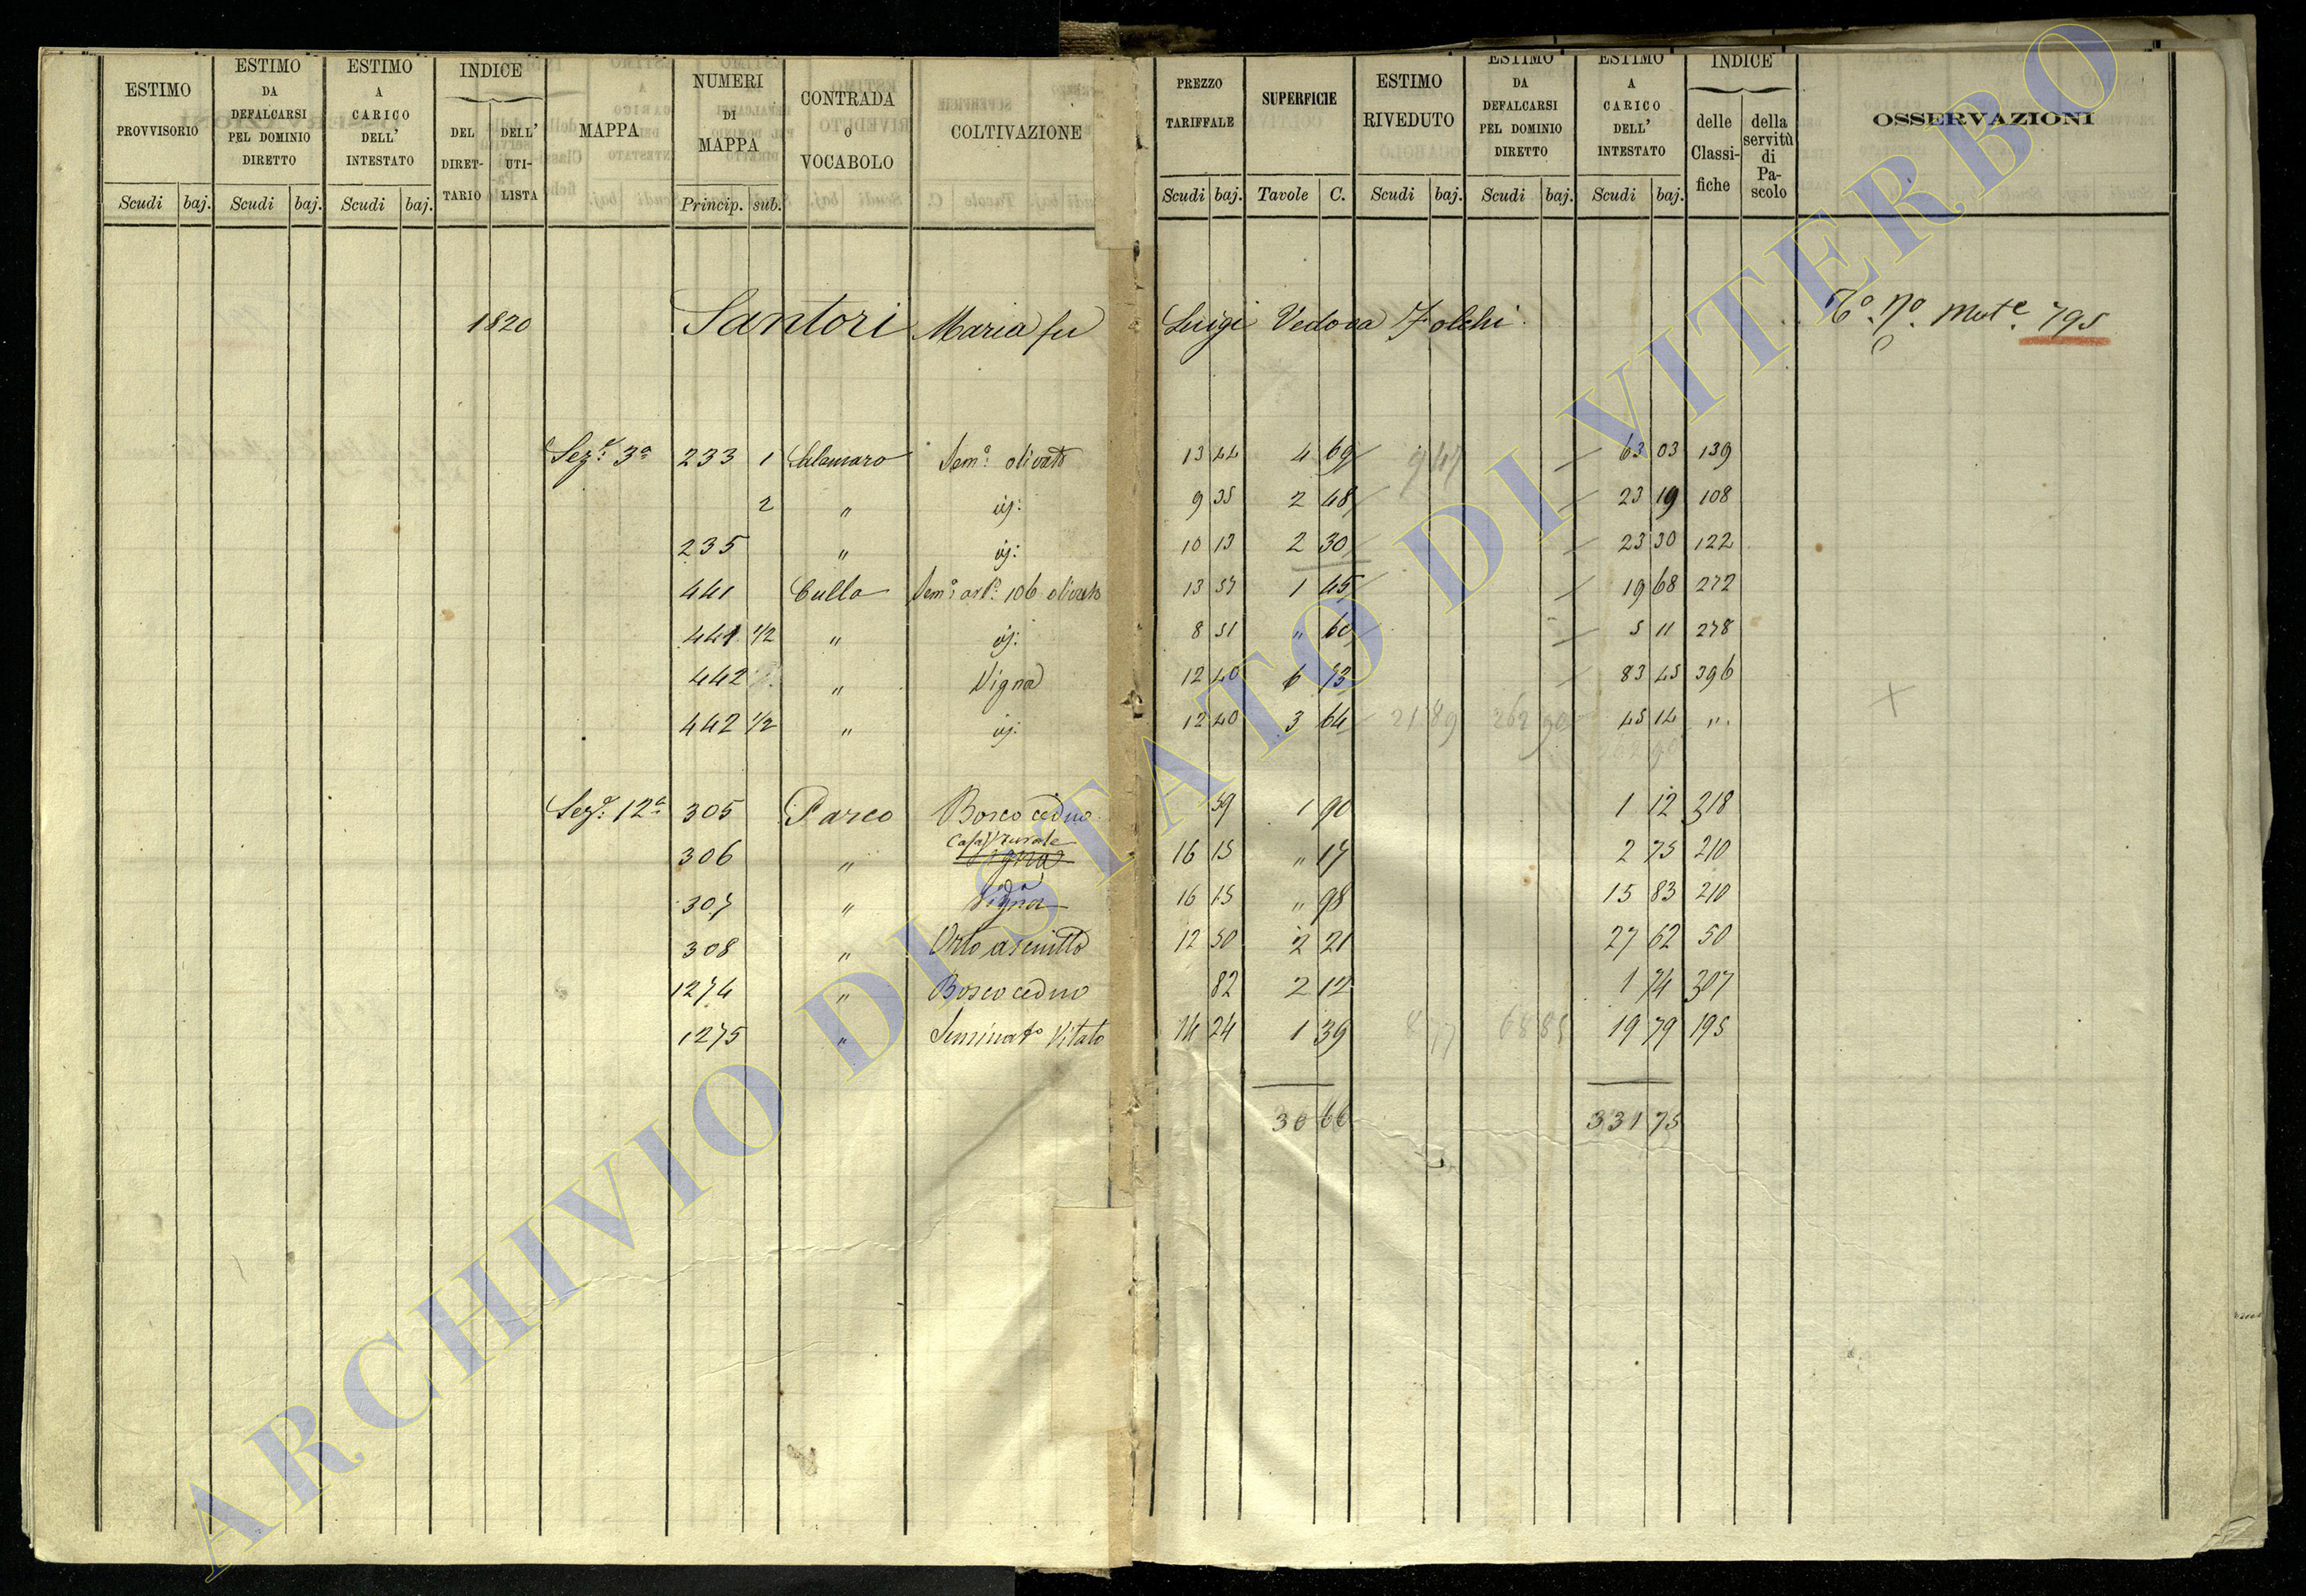 ESTIMO PROVVISORIO
ESTIMO DA DEFALCARSI PEL DOMINIO DIRETTO
ESTIMO A CARICO DELL' INTESTATO
INDICE
DEL DIRET-TARIO
DELL' UTI-LISTA
MAPPA
NUMERI DI MAPPA
CONTRADA O VOCABOLO
COLTIVAZIONE
PREZZO TARIFFALE
SUPERFICIE
ESTIMO RIVEDUTO
ESTIMO DA DEFALCARSI PEL DOMINIO DIRETTO
ESTIMO A CARICO DELL' INTESTATO
INDICE
delle Classi-fiche
della servitù di Pa-scolo
OSSERVAZIONI
Scudi baj. Scudi baj. Scudi baj. Princip. sub. Scudi baj. Tavole C. Scudi baj. Scudi baj. Scudi baj.
1820 Santori Maria fu Luigi Vedova Folchi 795
Sez.e 3a 233 1 Sem.o olivato 13 44 4 69 63 03 139
2 " id: 9 35 2 48 23 19 108
235 " id: 10 13 2 30 23 30 122
441 Culla Sem.o 106 olivato 13 57 1 45 19 68 272
441 1/2 " id: 8 51 " 60 5 11 278
442 " Vigna 12 40 6 73 83 45 396
442 1/2 " id: 12 40 3 64 21 89 262 90 45 14 "
Sez.e 12a 305 Parco Bosco ceduo 59 1 90 1 12 318
306 " Casa rurale Vigna 16 15 " 17 2 75 210
307 " Vigna 16 15 " 98 15 83 210
308 " Orto asciutto 12 50 2 21 27 62 50
1274 " Bosco ceduo 82 2 12 1 74 307
1275 " Seminato Vitato 14 24 1 39 8 77 68 85 19 79 195
30 66 331 75
ARCHIVIO DI STATO DI VITERBO